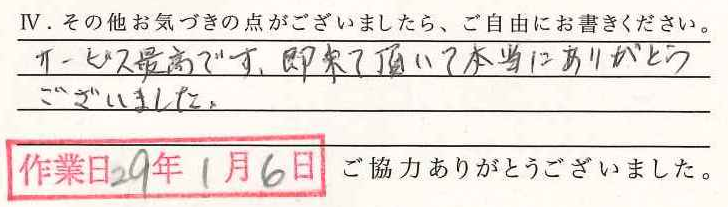 Ⅳ．その他お気づきの点がございましたら、ご自由にお書きください。
サービス最高です、即来て頂いて本当にありがとう
ございました。
作業日29年1月6日
ご協力ありがとうございました。